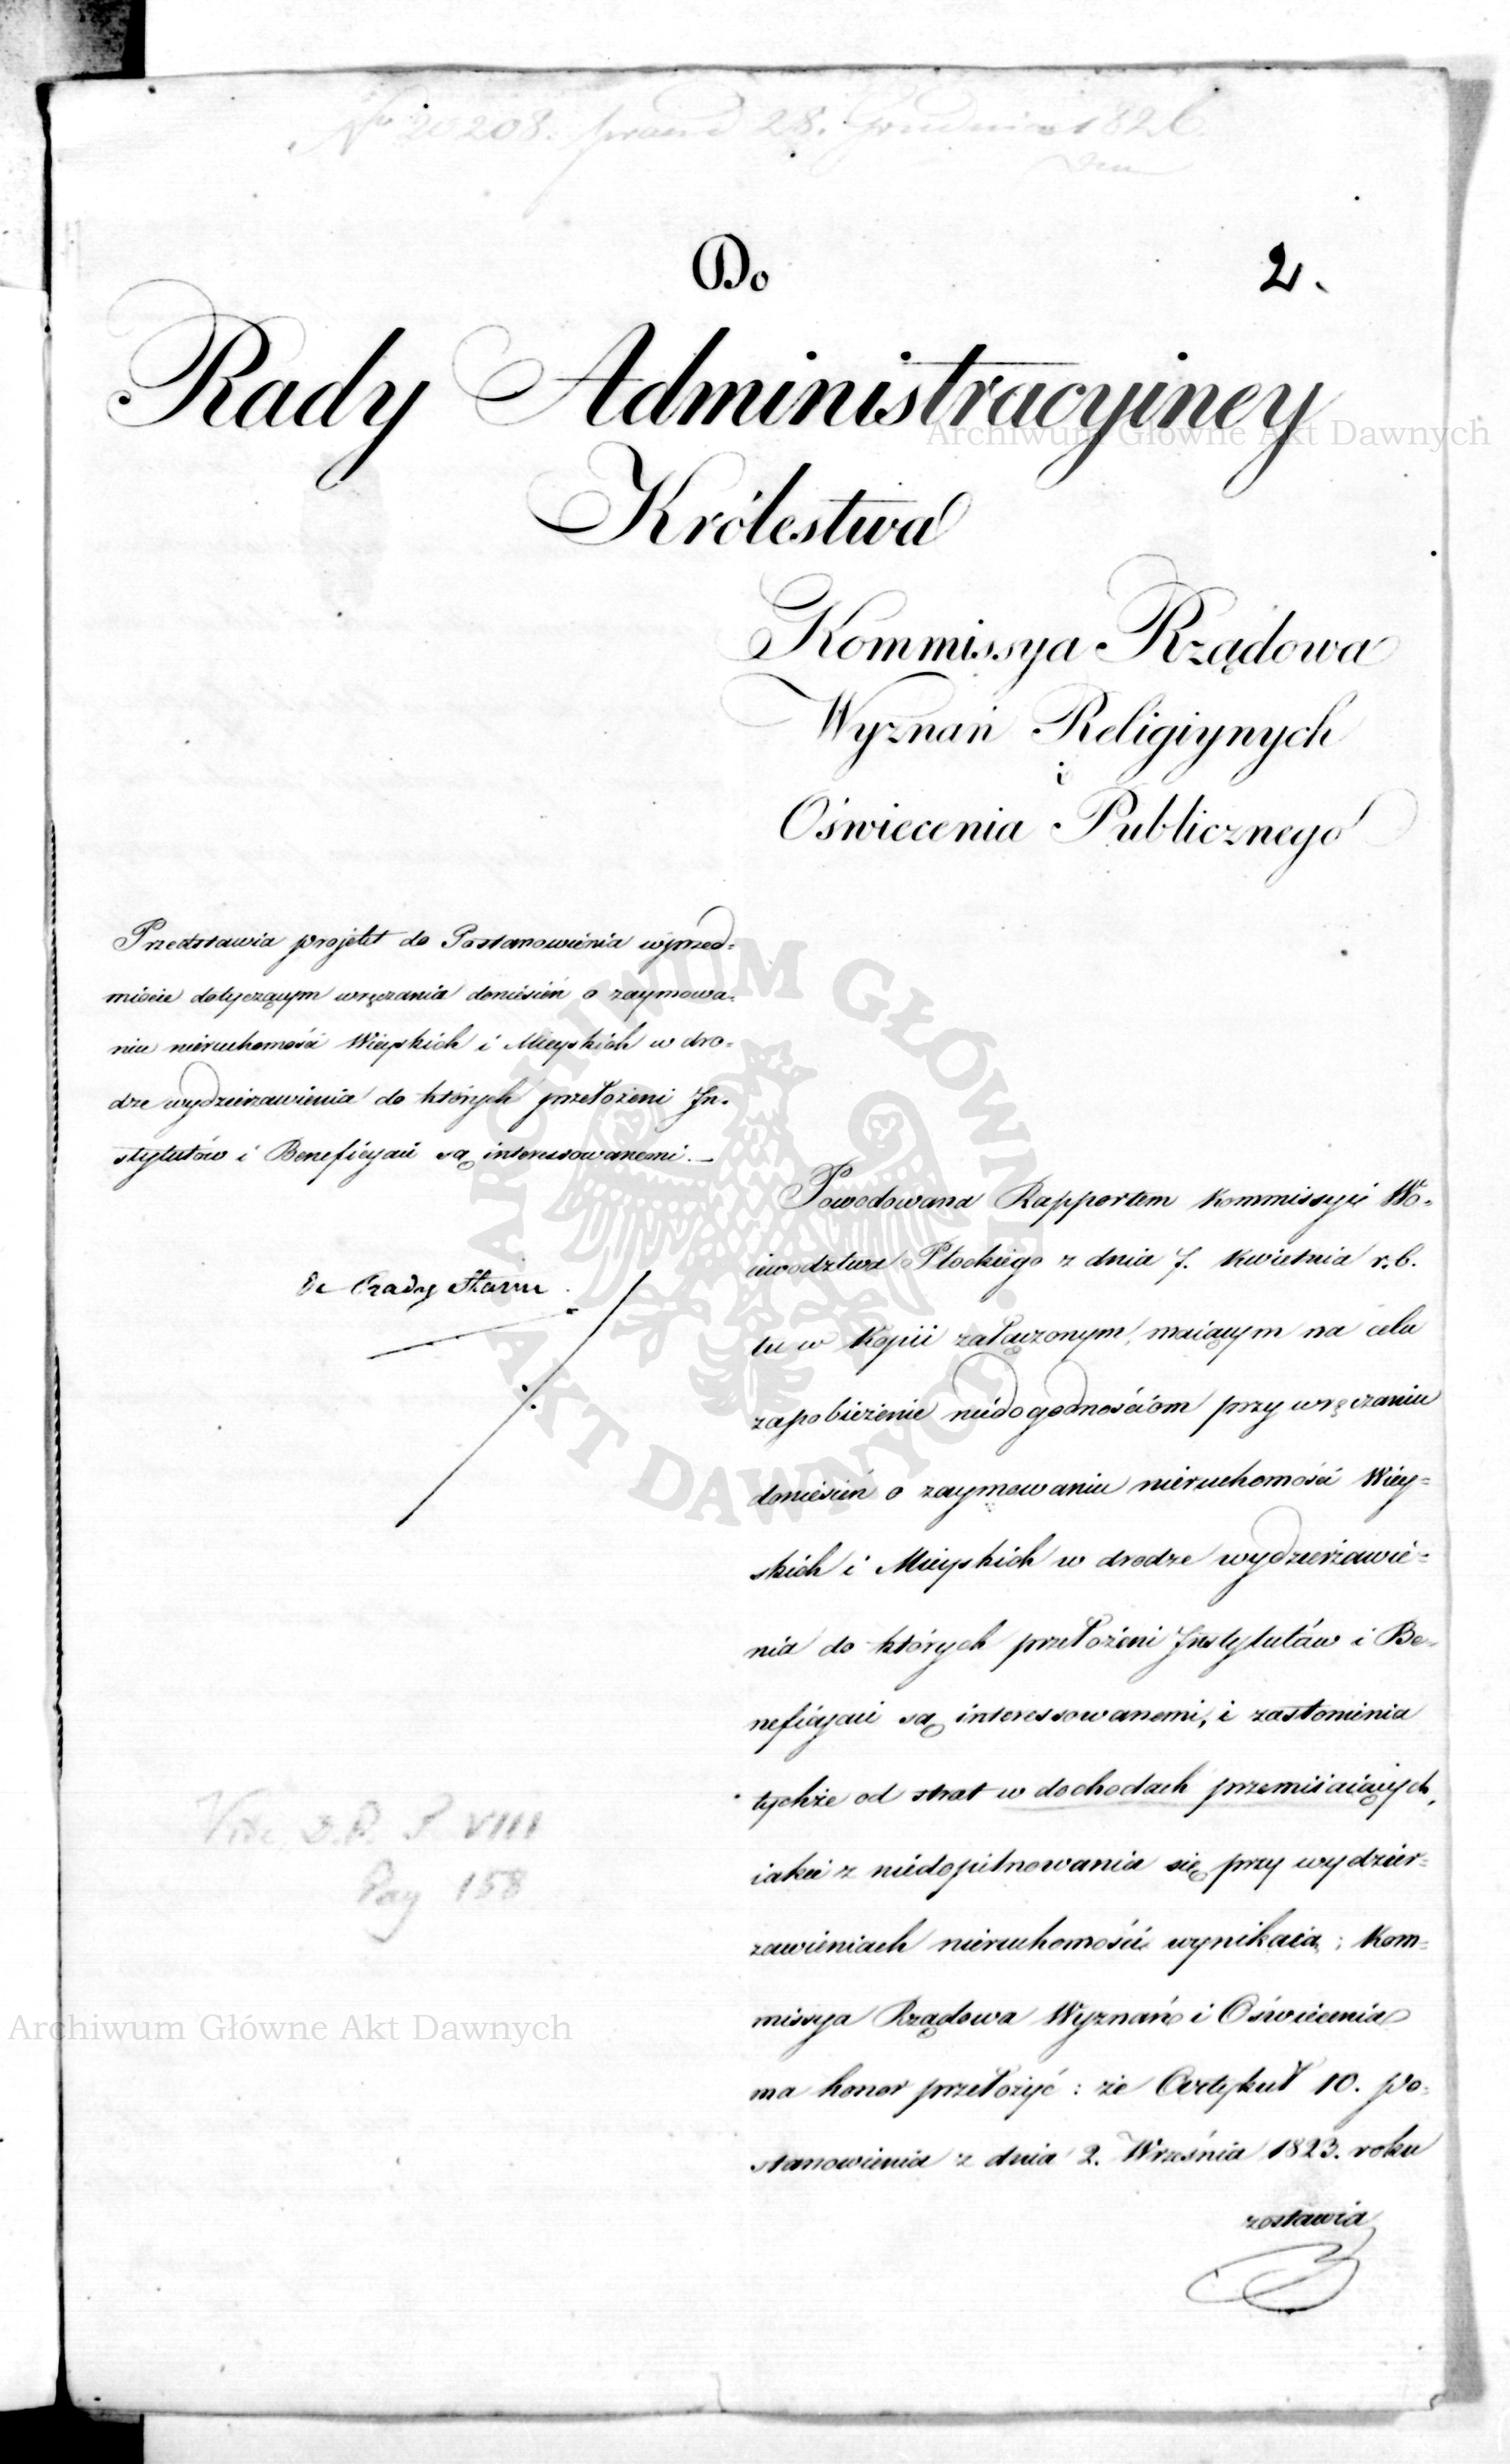 No 20208. praes d 28. Grudnia 1826.
Do
2.
Rady Administracyiney
Królestwa
Kommissya Rządowa
Wyznań Religiynych
i
Oświecenia Publicznego
Przedstawia projekt do Postanowienia w przed=
miocie dotyczącym wręczania doniesień o zaymowa=
niu nieruchomości Wieyskich i Mieyskich w dro=
dze wydzierżawienia do których przełożeni In=
stytutów i Beneficyaci są interessowanemi.—
Do Rady Stanu
Powodowana Rapportem Kommissyi Wo=
iewodztwa Płockiego z dnia 7. Kwietnia r.b.
tu w Kopii załączonym, maiącym na celu
zapobieżenie niedogodnościom przy wręczaniu
doniesień o zaymowaniu nieruchomości Wiey=
skich i Mieyskich w drodze wydzierżawie=
nia do których przełożeni Instytutów i Be=
neficyaci są interessowanemi, i zasłonienia
tychże od strat w dochodach przemiiaiących,
iakie z niedopilnowania się przy wydzier=
zawieniach nieruchomości wynikaią; Kom=
missya Rządowa Wyznań i Oświecenia
ma honor przełożyć: że Artykuł 10. po=
stanowienia z dnia 2. Września 1823. roku
zostawia
Vide D.P. T VIII
Pag 158
Archiwum Główne Akt Dawnych
Archiwum Główne Akt Dawnych
ARCHIWUM GŁÓWNE AKT DAWNYCH